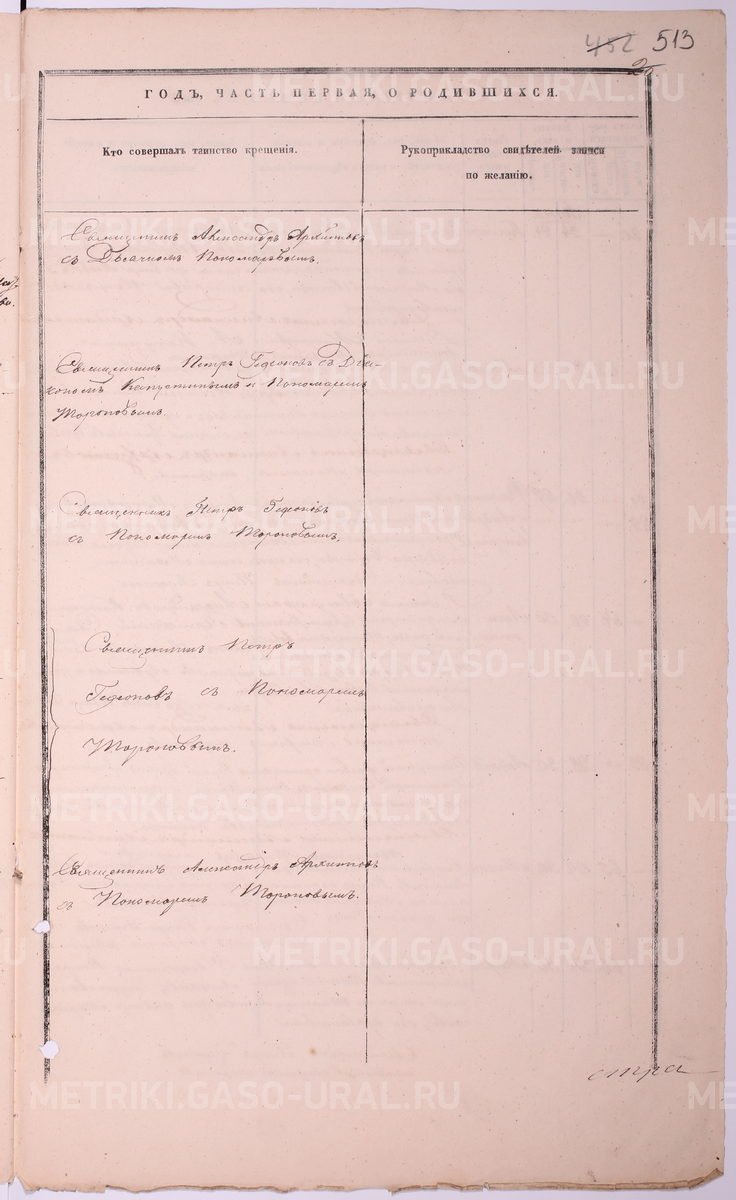 452 513
ГОДЪ, ЧАСТЬ ПЕРВАЯ, О РОДИВШИХСЯ.
Кто совершалъ таинство крещенія.
Рукоприкладство свидѣтелей записи
по желанію.
Священникъ Александръ Архиповъ
съ Дьячкомъ Пономаревымъ.
Священникъ Петръ Гедеоновъ съ Діа-
кономъ Капустинымъ и Пономаремъ
Тороповымъ.
Священникъ Петръ Гедеоновъ
съ Пономаремъ Тороповымъ.
Священникъ Петръ
Гедеоновъ съ Пономаремъ
Тороповымъ.
Священникъ Александръ Архиповъ
съ Пономаремъ Тороповымъ.
METRIKI.GASO-URAL.RU